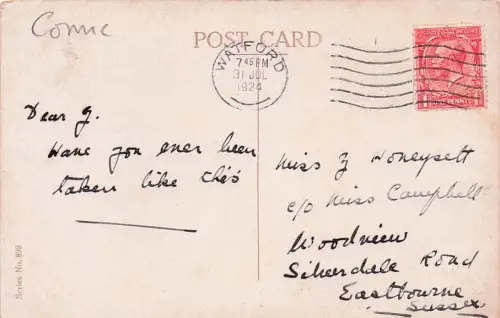 Connie
POST CARD
WATFORD
7 45 PM
31 JUL
1924
Dear J.
Have you ever been
taken like this
Miss J Honeysett
c/o Miss Campbell
Woodview
Silverdale Road
Eastbourne
Sussex
Series No. 898